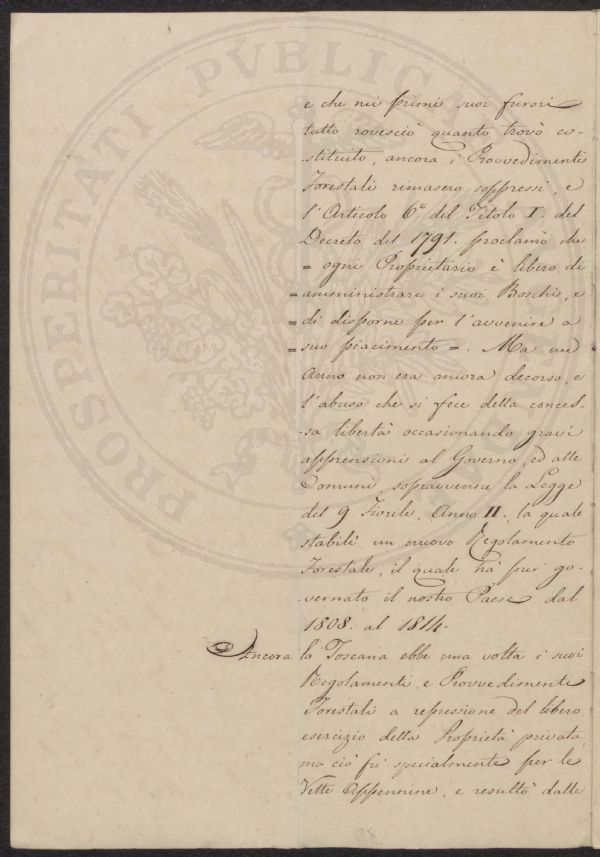 PROSPERITATI PVBLICAE
e che nei primi suoi furori
tutto rovesciò quanto trovò co-
-stituito, ancora i Provvedimenti
Forestali rimasero soppressi, e
l'Articolo 6º del Titolo I. del
Decreto del 1791. proclamò che
= ogni Proprietario è libero di
= amministrare i suoi Boschi, e
= di disporne per l'avvenire a
= suo piacimento =. Ma un
Anno non era ancora decorso, e
l'abuso che si fece della conces-
-sa libertà occasionando gravi
apprensioni al Governo, ed alle
Comuni, sopravvenne la Legge
del 9. Fiorile, Anno II., la quale
stabilì un nuovo Regolamento
Forestale, il quale hà pur go-
-vernato il nostro Paese dal
1808. al 1814.
Ancora la Toscana ebbe una volta i suoi
Regolamenti, e Provvedimenti
Forestali a repressione del libero
esercizio della Proprietà privata,
ma ciò fù specialmente per le
Vette Appennine, e resultò dalle